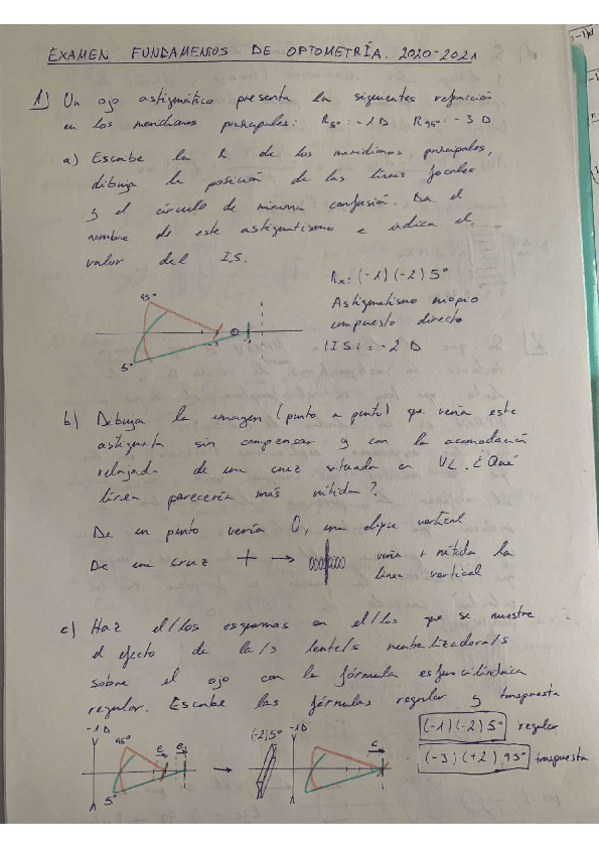 EXAMEN FUNDAMENTOS DE OPTOMETRÍA. 2020-2021
1) Un ojo astigmático presenta la siguientes refracción
en los meridianos principales: R5º: -1 D R95º: -3 D
a) Escribe la R de los meridianos principales,
dibuja la posición de las líneas focales
y el círculo de mínima confusión. Da el
nombre de este astigmatismo e indica el
valor del I.S.
Rx: (-1)(-2) 5º
Astigmatismo miopio
compuesto directo
|IS| = -2 D
95º
-3
-1
5º
b) Dibuja la imagen (punto a punto) que vería este
astígmata sin compensar y con la acomodación
relajada de una cruz situada en VL. ¿Qué
línea parecería más nítida?
De un punto vería 0, una elipse vertical
De una cruz + → vería + nítida la
línea vertical
c) Haz el/los esquemas en el/los que se muestre
el efecto de la/s lente/s neutralizadora/s
sobre el ojo con la fórmula esferocilíndrica
regular. Escribe las fórmulas regular y traspuesta
-1 D 95º e e 5º → (-2)5º -1 D c
(-1)(-2) 5º regular
(-3)(+2) 95º traspuesta